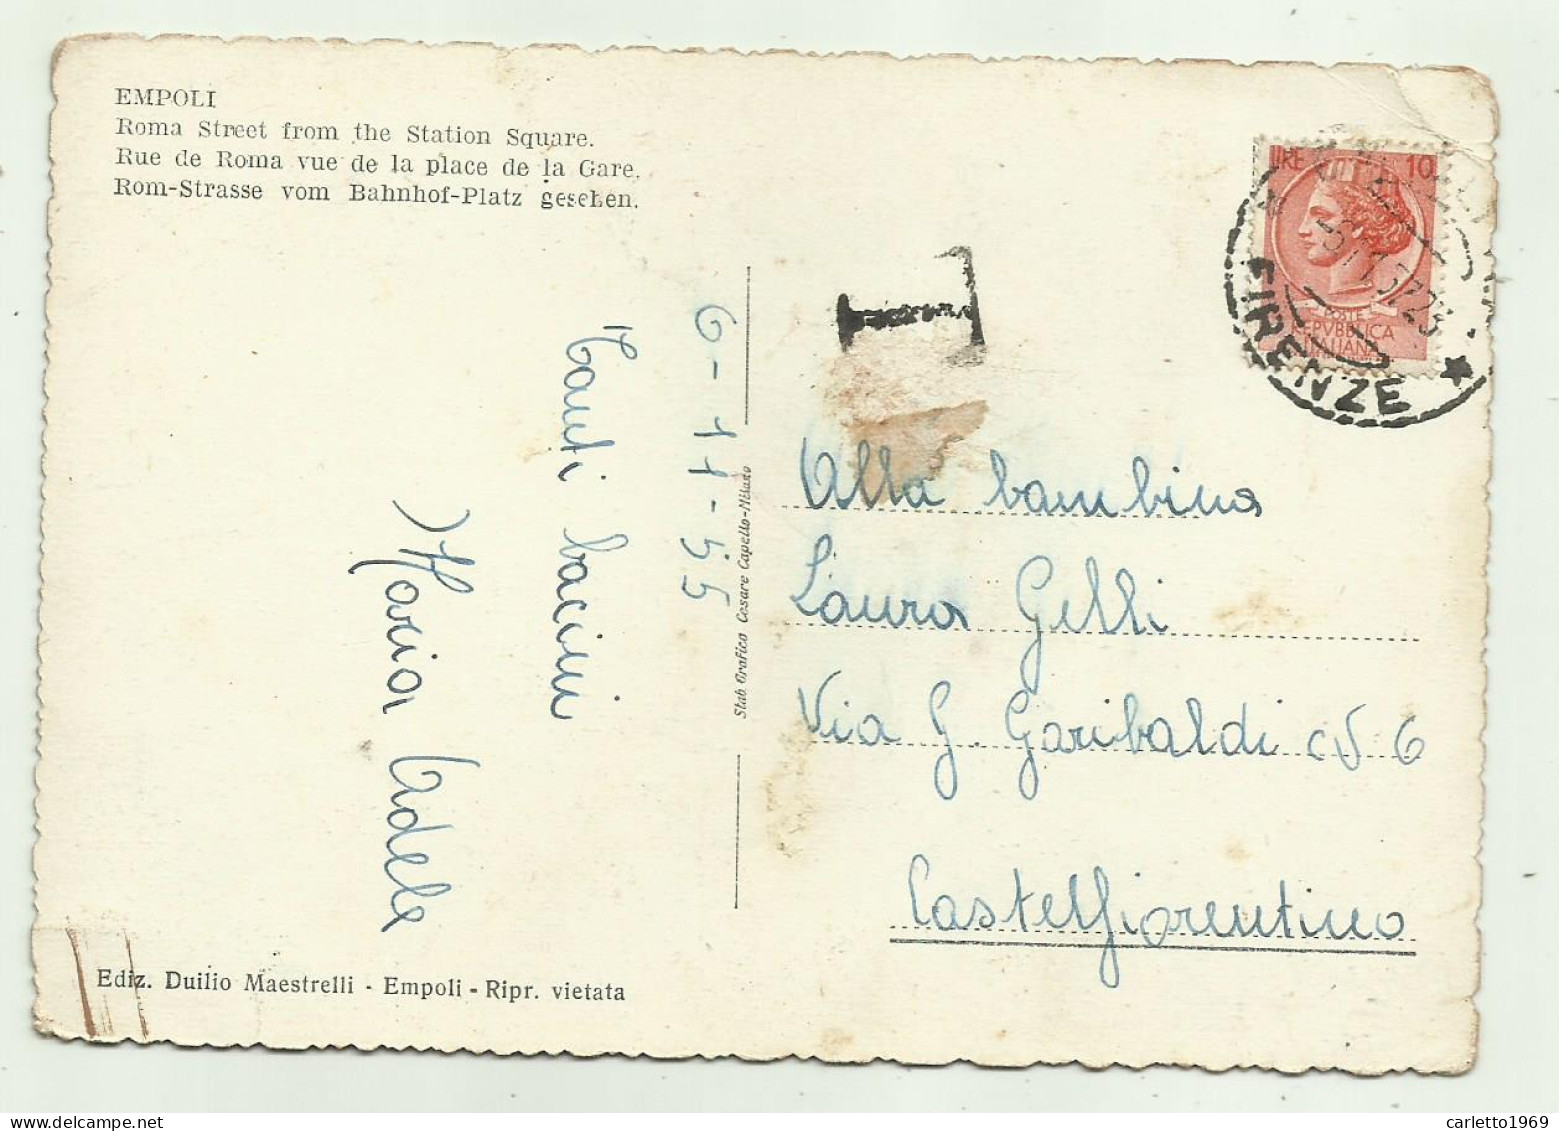 EMPOLI
Roma Street from the Station Square.
Rue de Roma vue de la place de la Gare.
Rom-Strasse vom Bahnhof-Platz gesehen.
LIRE 10
POSTE
REPVBBLICA
ITALIANA
FIRENZE
T
6-11-55
Tanti bacini
Maria Adele
Stab. Grafico Cesare Capello-Milano
Alla bambina
Laura Gelli
Via G. Garibaldi N 6
Castelfiorentino
Ediz. Duilio Maestrelli - Empoli - Ripr. vietata
carletto1969